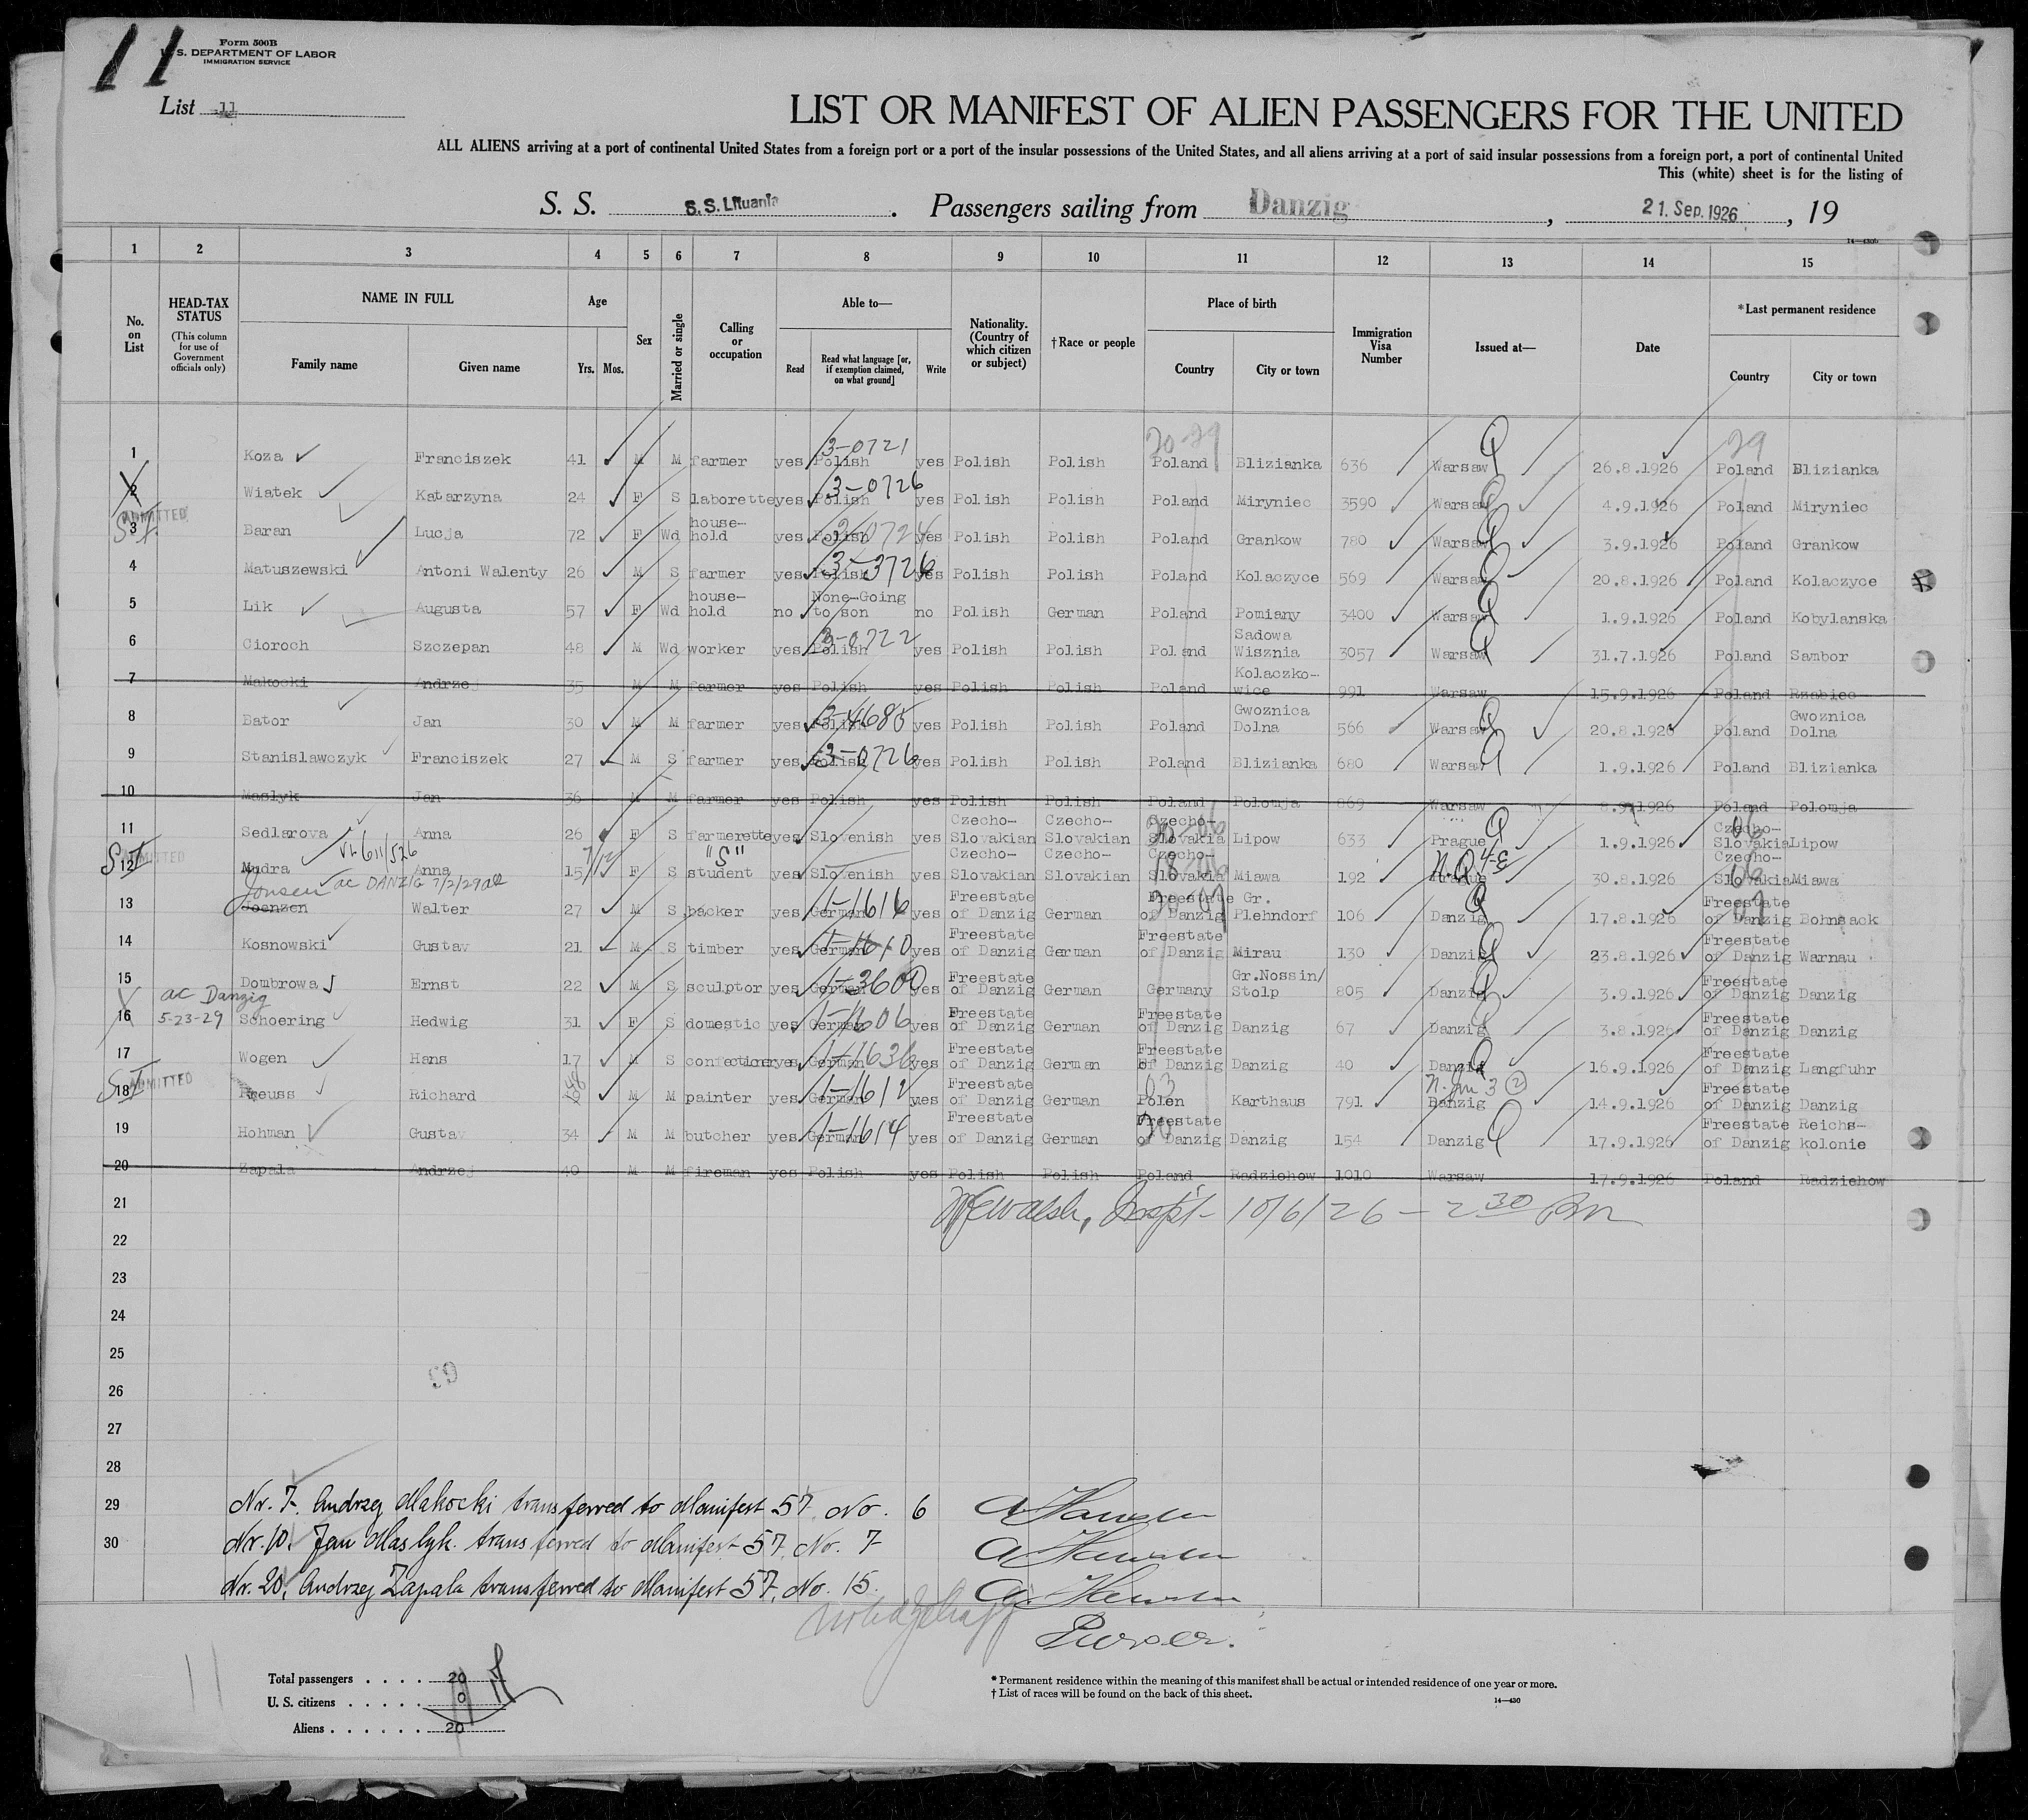 11
Form 500B
U. S. DEPARTMENT OF LABOR
IMMIGRATION SERVICE
List 11
LIST OR MANIFEST OF ALIEN PASSENGERS FOR THE UNITED
ALL ALIENS arriving at a port of continental United States from a foreign port or a port of the insular possessions of the United States, and all aliens arriving at a port of said insular possessions from a foreign port, a port of continental United
This (white) sheet is for the listing of
S. S. S.S. Lituania. Passengers sailing from Danzig, 21. Sep. 1926, 19
14—430b
1 2 3 4 5 6 7 8 9 10 11 12 13 14 15
No. on List
HEAD-TAX STATUS (This column for use of Government officials only)
NAME IN FULL
Family name Given name
Age
Yrs. Mos.
Sex
Married or single
Calling or occupation
Able to—
Read Read what language [or, if exemption claimed, on what ground] Write
Nationality. (Country of which citizen or subject)
†Race or people
Place of birth
Country City or town
Immigration Visa Number
Issued at—
Date
*Last permanent residence
Country City or town
3-0721 20 29 Q 29
1 Koza Franciszek 41 M M farmer yes Polish yes Polish Polish Poland Blizianka 636 Warsaw 26.8.1926 Poland Blizianka
3-0726
2 Wiatek Katarzyna 24 F S laborette yes Polish yes Polish Polish Poland Miryniec 3590 Warsaw 4.9.1926 Poland Miryniec
ADMITTED
3 Baran Lucja 72 F Wd house-hold yes Polish 3-0724 yes Polish Polish Poland Grankow 780 Warsaw 3.9.1926 Poland Grankow
4 Matuszewski Antoni Walenty 26 M S farmer yes Polish 3-3726 yes Polish Polish Poland Kolaczyce 569 Warsaw 20.8.1926 Poland Kolaczyce
5 Lik Augusta 57 F Wd house-hold no None-Going to son no Polish German Poland Pomiany 3400 Warsaw 1.9.1926 Poland Kobylanska
6 Cioroch Szczepan 48 M Wd worker yes Polish 3-0722 yes Polish Polish Poland Sadowa Wisznia 3057 Warsaw 31.7.1926 Poland Sambor
7 Makocki Andrzej 35 M M farmer yes Polish yes Polish Polish Poland Kolaczko-wice 991 Warsaw 15.9.1926 Poland Rzabiec
8 Bator Jan 30 M M farmer yes Polish 3-4685 yes Polish Polish Poland Gwoznica Dolna 566 Warsaw 20.8.1926 Poland Gwoznica Dolna
9 Stanislawczyk Franciszek 27 M S farmer yes Polish 3-0726 yes Polish Polish Poland Blizianka 680 Warsaw 1.9.1926 Poland Blizianka
10 Maslyk Jan 36 M M farmer yes Polish yes Polish Polish Poland Polomja 869 Warsaw 8.9.1926 Poland Polomja
11 Sedlarova Anna 26 F S farmerette yes Slovenish yes Czecho-Slovakian Czecho-Slovakian Czecho-Slovakia Lipow 633 Prague 1.9.1926 Czecho-Slovakia Lipow
VL 611/526 7/12 "S"
ADMITTED
12 Mudra Anna 15 F S student yes Slovenish yes Czecho-Slovakian Czecho-Slovakian Czecho-Slovakia Miawa 192 Prague N.Q. 4-E 30.8.1926 Czecho-Slovakia Miawa
Jonsen ac DANZIG 7/2/29
13 Joenzen Walter 27 M S backer yes German 1-1616 yes Freestate of Danzig German Freestate of Danzig Gr. Plehndorf 106 Danzig 17.8.1926 Freestate of Danzig Bohnsack
14 Kosnowski Gustav 21 M S timber yes German 1-1610 yes Freestate of Danzig German Freestate of Danzig Mirau 130 Danzig 23.8.1926 Freestate of Danzig Warnau
15 Dombrowa Ernst 22 M S sculptor yes German 1-3600 yes Freestate of Danzig German Germany Gr.Nossin/Stolp 805 Danzig 3.9.1926 Freestate of Danzig Danzig
ac Danzig
16 5-23-29 Schoering Hedwig 31 F S domestic yes German 1-1606 yes Freestate of Danzig German Freestate of Danzig Danzig 67 Danzig 3.8.1926 Freestate of Danzig Danzig
17 Wogen Hans 17 M S confectioner yes German 1-1636 yes Freestate of Danzig German Freestate of Danzig Danzig 40 Danzig 16.9.1926 Freestate of Danzig Langfuhr
ADMITTED
18 Preuss Richard 49 M M painter yes German 1-1612 yes Freestate of Danzig German Polen Karthaus 791 Danzig 14.9.1926 Freestate of Danzig Danzig
19 Hohman Gustav 34 M M butcher yes German 1-1614 yes Freestate of Danzig German Freestate of Danzig Danzig 154 Danzig 17.9.1926 Freestate of Danzig Reichs-kolonie
20 Zapala Andrzej 40 M M fireman yes Polish yes Polish Polish Poland Radziehow 1010 Warsaw 17.9.1926 Poland Radziehow
21 Walsh, Inspt- 10/6/26 - 2 30 Pm
22
23
24
25
26
27
28
29 Nr. 7. Andrzej Makocki transferred to Manifest 57 No. 6
30 Nr. 10. Jan Maslyk transferred to Manifest 57. No. 7
Nr. 20. Andrzej Zapala transferred to Manifest 57. No. 15.
Purser.
11
Total passengers . . . . 20
U. S. citizens . . . . . 0
Aliens . . . . . . 20
17
* Permanent residence within the meaning of this manifest shall be actual or intended residence of one year or more.
† List of races will be found on the back of this sheet.
14—430